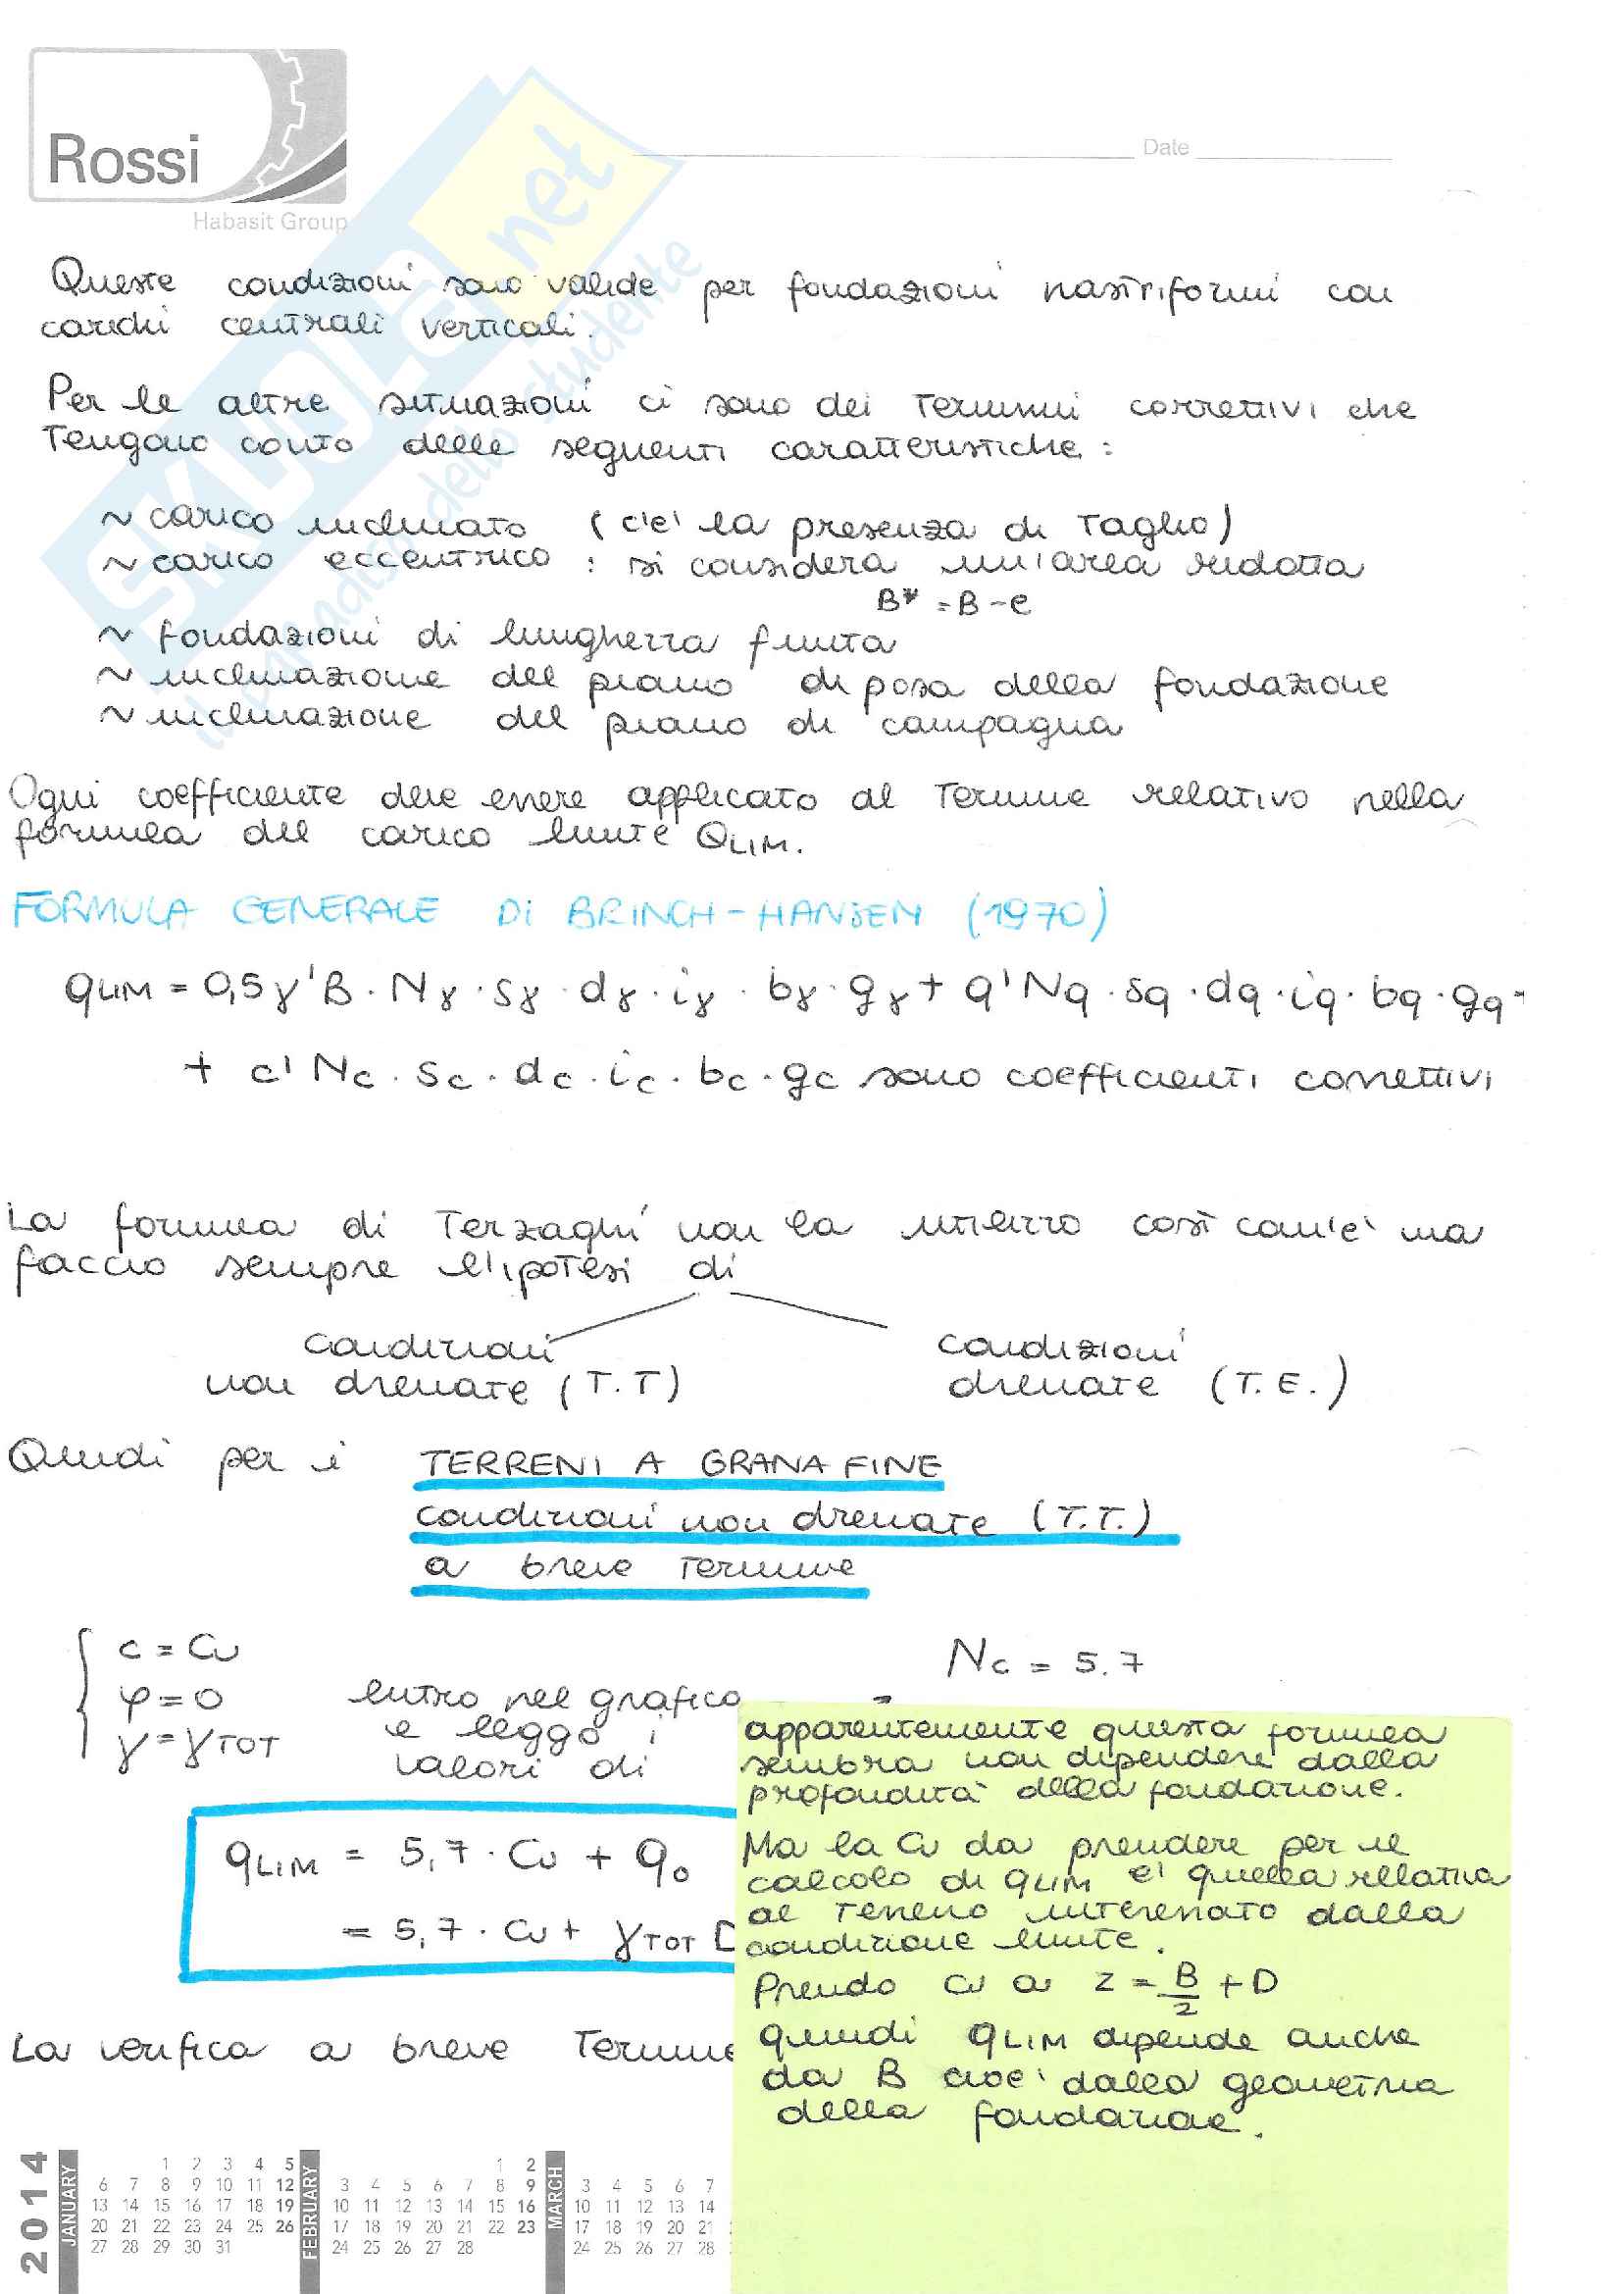 Rossi
Habasit Group
Date
SKUOLA.net
il paradiso dello studente
Queste condizioni sono valide per fondazioni nastriformi con
carichi centrali verticali.
Per le altre situazioni ci sono dei termini correttivi che
Tengono conto delle seguenti caratteristiche :
~ carico inclinato (c'è la presenza di Taglio)
~ carico eccentrico : si considera un'area ridotta
B* = B - e
~ fondazioni di lunghezza finita
~ inclinazione del piano di posa della fondazione
~ inclinazione del piano di campagna
Ogni coefficiente deve essere applicato al Termine relativo nella
formula del carico limite QLIM.
FORMULA GENERALE Di BRINCH-HANSEN (1970)
qLIM = 0,5 γ' B · Nγ · sγ · dγ · iγ · bγ · gγ + q' Nq · sq · dq · iq · bq · gq +
+ c' Nc · sc · dc · ic · bc · gc sono coefficienti correttivi
La formula di Terzaghi non la utilizzo così com'è ma
faccio sempre l'ipotesi di
condizioni non drenate (T.T)
condizioni drenate (T.E.)
Quindi per i TERRENI A GRANA FINE
condizioni non drenate (T.T.)
a breve Termine
c = Cu
φ = 0
γ = γTOT
entro nel grafico
e leggo i
valori di
Nc = 5.7
qLIM = 5,7 · Cu + q0
= 5,7 · Cu + γTOT D
La verifica a breve Termine
apparentemente questa formula
sembra non dipendere dalla
profondità della fondazione.
Ma la Cu da prendere per il
calcolo di qLIM è quella relativa
al terreno interessato dalla
condizione limite.
Prendo Cu a z = B/2 + D
quindi qLIM dipende anche
da B cioè dalla geometria
della fondazione.
2014
JANUARY
1 2 3 4 5
6 7 8 9 10 11 12
13 14 15 16 17 18 19
20 21 22 23 24 25 26
27 28 29 30 31
FEBRUARY
1 2
3 4 5 6 7 8 9
10 11 12 13 14 15 16
17 18 19 20 21 22 23
24 25 26 27 28
MARCH
3 4 5 6 7
10 11 12 13 14
17 18 19 20 21
24 25 26 27 28